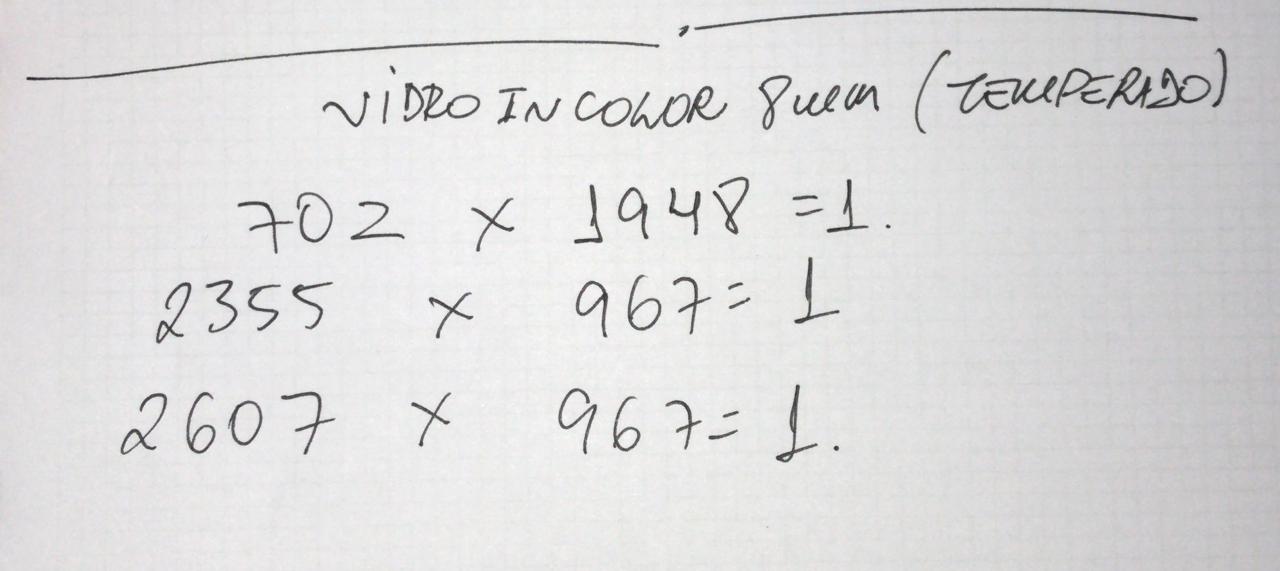 VIDRO INCOLOR 8mm (TEMPERADO)
702 x 1948 = 1.
2355 x 967 = 1
2607 x 967 = 1.